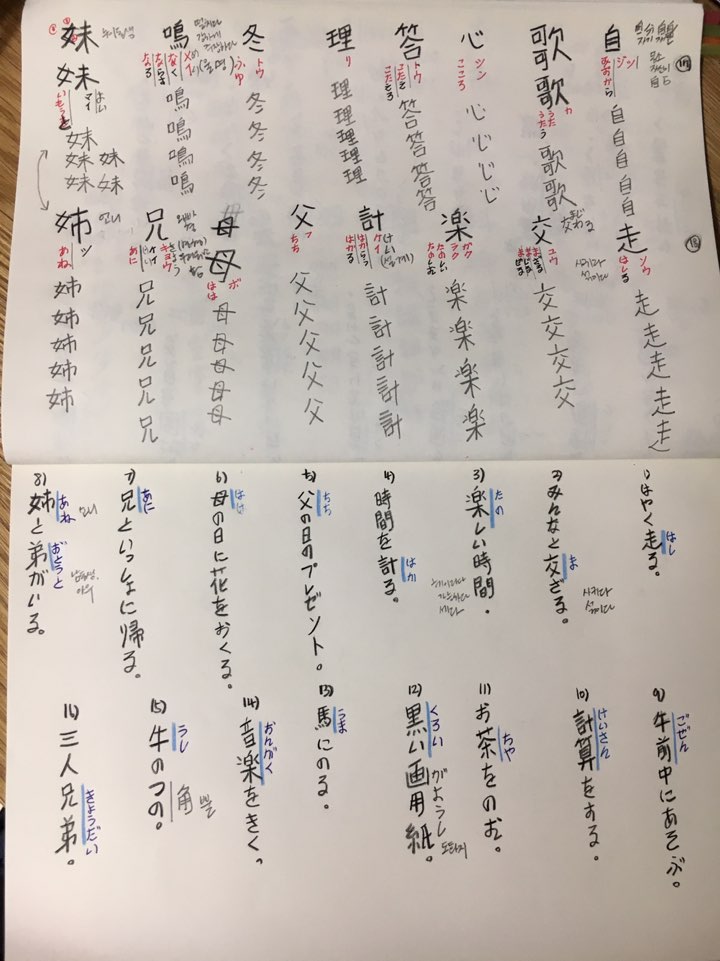 自
ジ
みずから
自
自
自
自
自
歌
歌
カ
うた
うたう
歌
歌
歌
心
シン
こころ
心
心
心
心
答
トウ
こたえ
こたえる
答
答
答
答
理
リ
理
理
理
理
理
冬
トウ
ふゆ
冬
冬
冬
冬
鳴
メイ
なく
なる
ならす
鳴
鳴
鳴
鳴
妹
妹
マイ
いもうと
妹
妹 妹
妹 妹
走
ソウ
はしる
走
走
走
走
走
交
コウ
まじわる
交
交
交
交
楽
ガク
ラク
たのしい
たのしむ
楽
楽
楽
楽
計
ケイ
はかる
はからう
計
計
計
計
計
父
フ
ちち
父
父
父
父
父
母
母
ボ
はは
母
母
母
母
母
兄
キョウ
ケイ
あに
兄
兄
兄
兄
兄
姉
シ
あね
언니
姉
姉
姉
姉
姉
1) はやく走る。
はし
2) みんなと交ざる。
ま
3) 楽しい時間。
たの
4) 時間を計る。
はか
5) 父の日のプレゼント。
ちち
6) 母の日に花をおくる。
はは
7) 兄といっしょに帰る。
あに
8) 姉と弟がいる。
あね
おとうと
언니
9) 午前中にあそぶ。
ごぜん
10) 計算をする。
けいさん
11) お茶をのむ。
ちゃ
12) 黒い画用紙。
くろい
がようし
도화지
13) 馬にのる。
うま
14) 音楽をきく。
おんがく
15) 牛のつの。
うし
角 뿔
16) 三人兄弟。
きょうだい